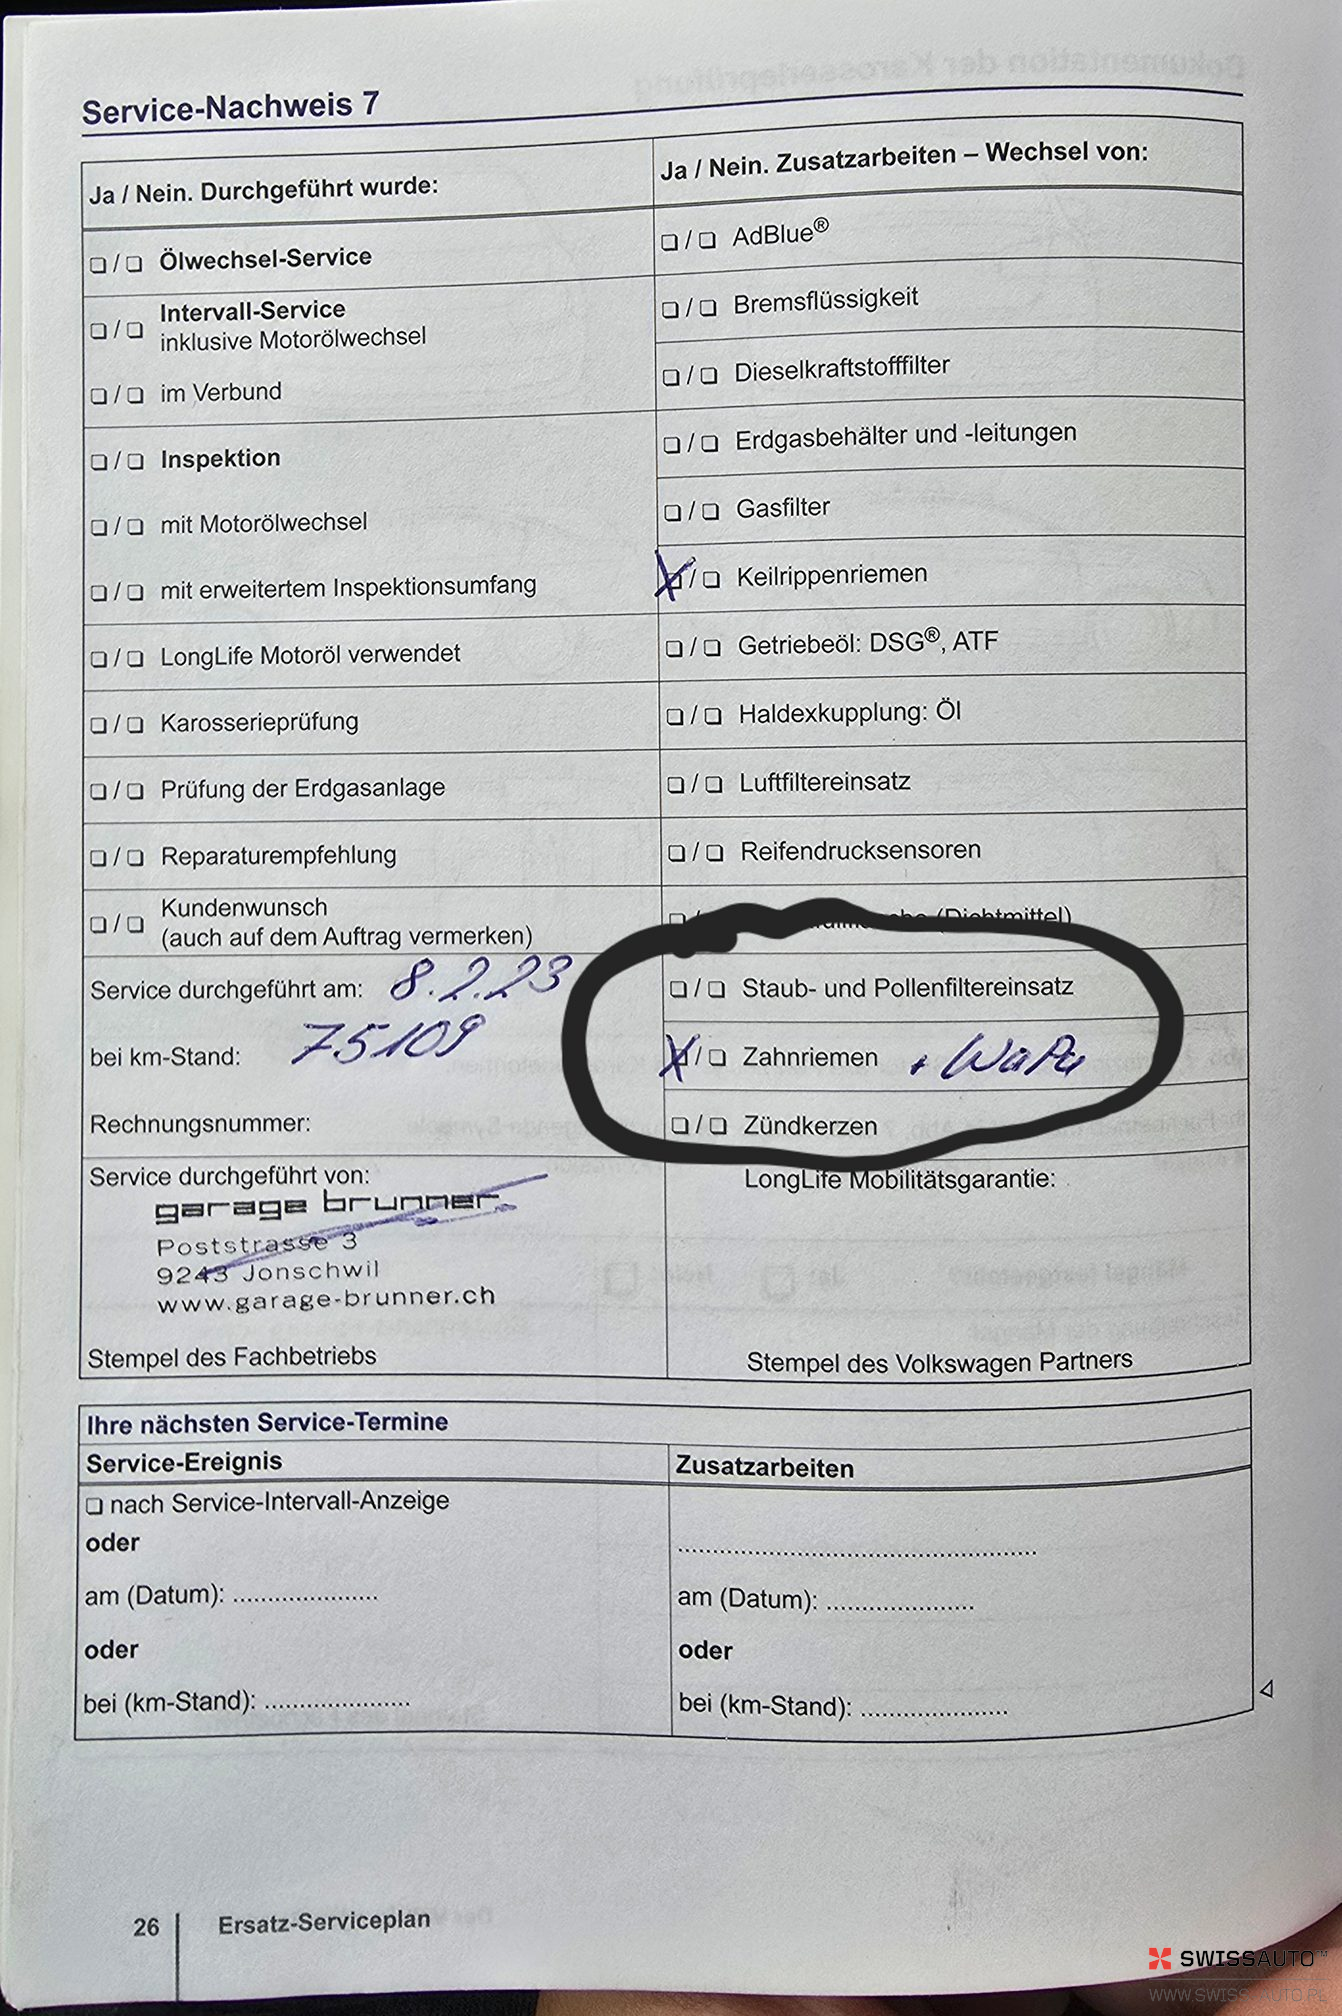 Service-Nachweis 7
Ja / Nein. Durchgeführt wurde:
❏ / ❏ Ölwechsel-Service
❏ / ❏ Intervall-Service
inklusive Motorölwechsel
❏ / ❏ im Verbund
❏ / ❏ Inspektion
❏ / ❏ mit Motorölwechsel
❏ / ❏ mit erweitertem Inspektionsumfang
❏ / ❏ LongLife Motoröl verwendet
❏ / ❏ Karosserieprüfung
❏ / ❏ Prüfung der Erdgasanlage
❏ / ❏ Reparaturempfehlung
❏ / ❏ Kundenwunsch
(auch auf dem Auftrag vermerken)
Service durchgeführt am: 8.2.23
bei km-Stand: 75109
Rechnungsnummer:
Service durchgeführt von:
garage brunner
Poststrasse 3
9243 Jonschwil
www.garage-brunner.ch
Stempel des Fachbetriebs
Ja / Nein. Zusatzarbeiten – Wechsel von:
❏ / ❏ AdBlue®
❏ / ❏ Bremsflüssigkeit
❏ / ❏ Dieselkraftstofffilter
❏ / ❏ Erdgasbehälter und -leitungen
❏ / ❏ Gasfilter
X / ❏ Keilrippenriemen
❏ / ❏ Getriebeöl: DSG®, ATF
❏ / ❏ Haldexkupplung: Öl
❏ / ❏ Luftfiltereinsatz
❏ / ❏ Reifendrucksensoren
(Dichtmittel)
❏ / ❏ Staub- und Pollenfiltereinsatz
X / ❏ Zahnriemen + WaPu
❏ / ❏ Zündkerzen
LongLife Mobilitätsgarantie:
Stempel des Volkswagen Partners
Ihre nächsten Service-Termine
Service-Ereignis
❏ nach Service-Intervall-Anzeige
oder
am (Datum): ......................
oder
bei (km-Stand): ......................
Zusatzarbeiten
......................................................
am (Datum): ......................
oder
bei (km-Stand): ......................
26 Ersatz-Serviceplan
SWISSAUTO™
WWW.SWISSAUTO.PL